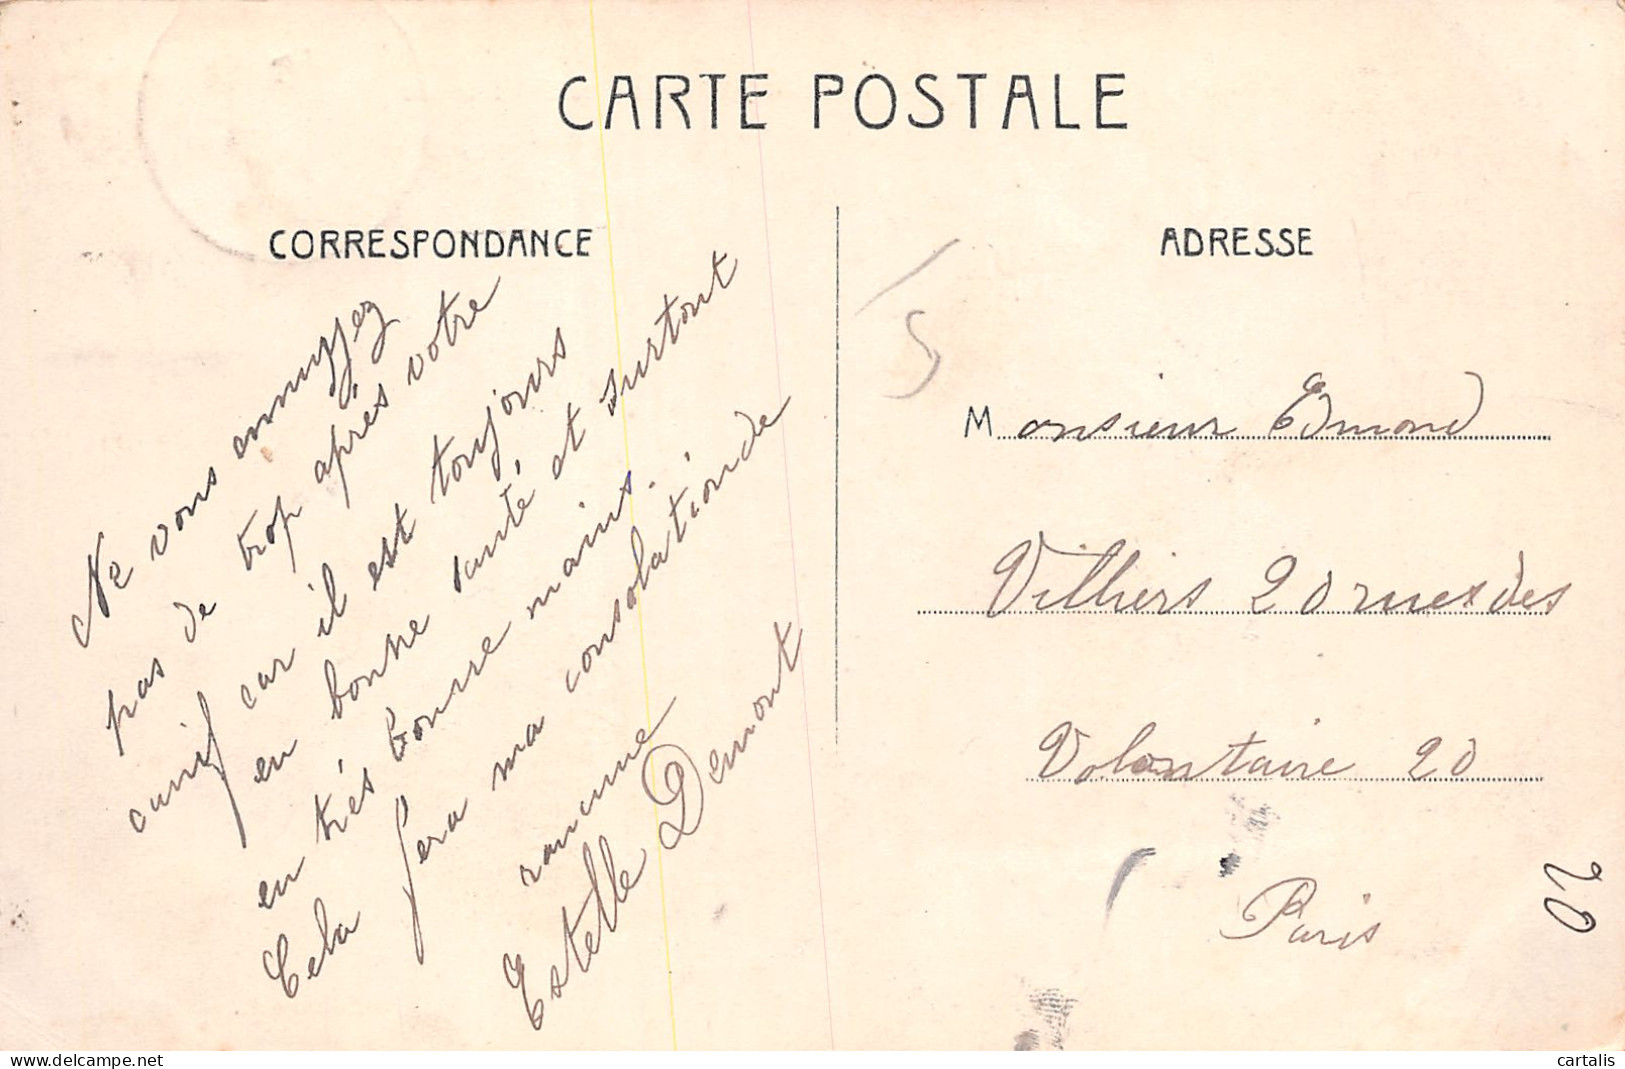 CARTE POSTALE
CORRESPONDANCE
Ne vous ennuyez
pas de trop après votre
canif car il est toujours
en bonne santé et surtout
en très bonne mains.
Cela sera ma consolation de
rancune
Estelle Demont
ADRESSE
5
Monsieur Edmond
Villiers 20 rue des
Volontaire 20
Paris
20
delcampe.net
cartalis